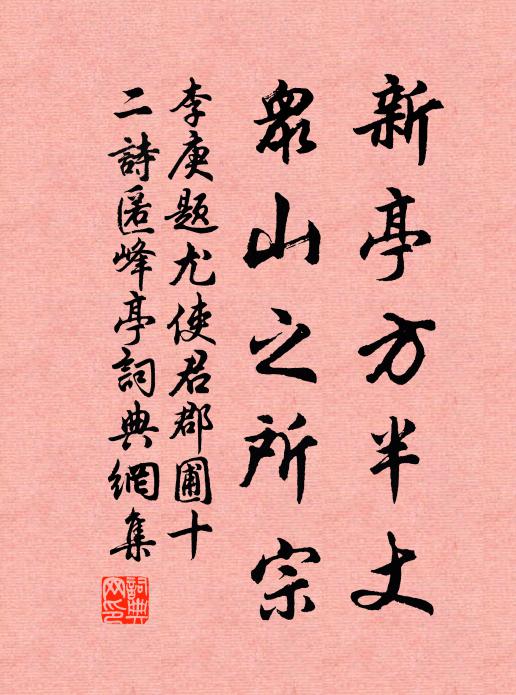 新亭方半丈
衆山之所宗
李庚題尤使君郡圃十
二詩匿峰亭詞典網集
詞典网印